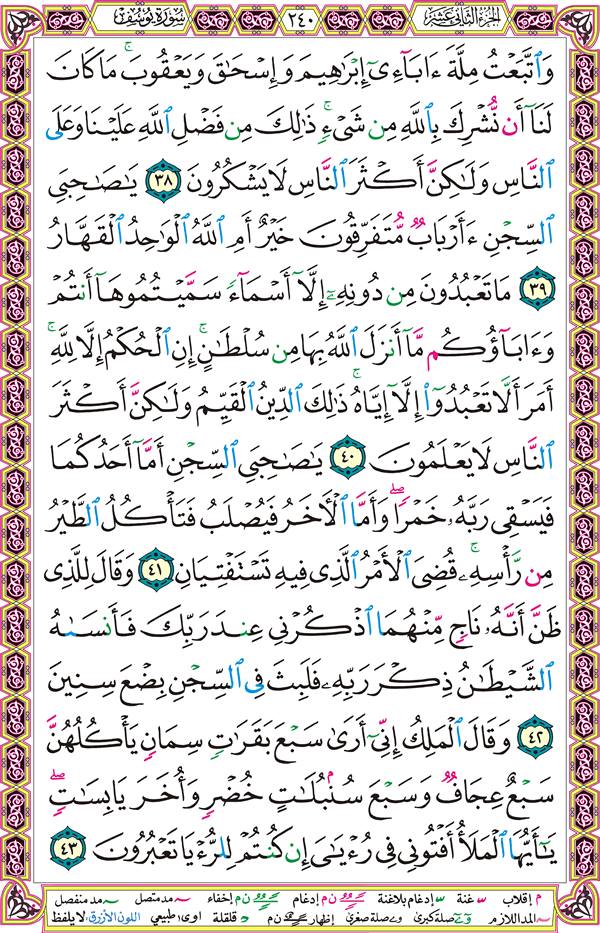 الجزء الثاني عشر ٢٤٠ سورة يوسف
وَٱتَّبَعْتُ مِلَّةَ ءَابَآءِىٓ إِبْرَٰهِيمَ وَإِسْحَٰقَ وَيَعْقُوبَ ۚ مَا كَانَ
لَنَآ أَن نُّشْرِكَ بِٱللَّهِ مِن شَىْءٍ ۚ ذَٰلِكَ مِن فَضْلِ ٱللَّهِ عَلَيْنَا وَعَلَى
ٱلنَّاسِ وَلَٰكِنَّ أَكْثَرَ ٱلنَّاسِ لَا يَشْكُرُونَ ٣٨ يَٰصَٰحِبَىِ
ٱلسِّجْنِ ءَأَرْبَابٌ مُّتَفَرِّقُونَ خَيْرٌ أَمِ ٱللَّهُ ٱلْوَٰحِدُ ٱلْقَهَّارُ
٣٩ مَا تَعْبُدُونَ مِن دُونِهِۦٓ إِلَّآ أَسْمَآءً سَمَّيْتُمُوهَآ أَنتُمْ
وَءَابَآؤُكُم مَّآ أَنزَلَ ٱللَّهُ بِهَا مِن سُلْطَٰنٍ ۚ إِنِ ٱلْحُكْمُ إِلَّا لِلَّهِ ۚ
أَمَرَ أَلَّا تَعْبُدُوٓا۟ إِلَّآ إِيَّاهُ ۚ ذَٰلِكَ ٱلدِّينُ ٱلْقَيِّمُ وَلَٰكِنَّ أَكْثَرَ
ٱلنَّاسِ لَا يَعْلَمُونَ ٤٠ يَٰصَٰحِبَىِ ٱلسِّجْنِ أَمَّآ أَحَدُكُمَا
فَيَسْقِى رَبَّهُۥ خَمْرًا ۖ وَأَمَّا ٱلْءَاخَرُ فَيُصْلَبُ فَتَأْكُلُ ٱلطَّيْرُ
مِن رَّأْسِهِۦ ۚ قُضِىَ ٱلْأَمْرُ ٱلَّذِى فِيهِ تَسْتَفْتِيَانِ ٤١ وَقَالَ لِلَّذِى
ظَنَّ أَنَّهُۥ نَاجٍ مِّنْهُمَا ٱذْكُرْنِى عِندَ رَبِّكَ فَأَنسَىٰهُ
ٱلشَّيْطَٰنُ ذِكْرَ رَبِّهِۦ فَلَبِثَ فِى ٱلسِّجْنِ بِضْعَ سِنِينَ
٤٢ وَقَالَ ٱلْمَلِكُ إِنِّىٓ أَرَىٰ سَبْعَ بَقَرَٰتٍ سِمَانٍ يَأْكُلُهُنَّ
سَبْعٌ عِجَافٌ وَسَبْعَ سُنۢبُلَٰتٍ خُضْرٍ وَأُخَرَ يَابِسَٰتٍ ۖ
يَٰٓأَيُّهَا ٱلْمَلَأُ أَفْتُونِى فِى رُءْيَٰىَ إِن كُنتُمْ لِلرُّءْيَا تَعْبُرُونَ ٤٣
م إقلاب غنة إدغام بلاغنة ن م إدغام ن م إخفاء مد متصل مد منفصل
المد اللازم صلة كبرى صلة صغرى إظهار ن م قلقلة اوى طبيعي اللون الأزرق: لا يلفظ